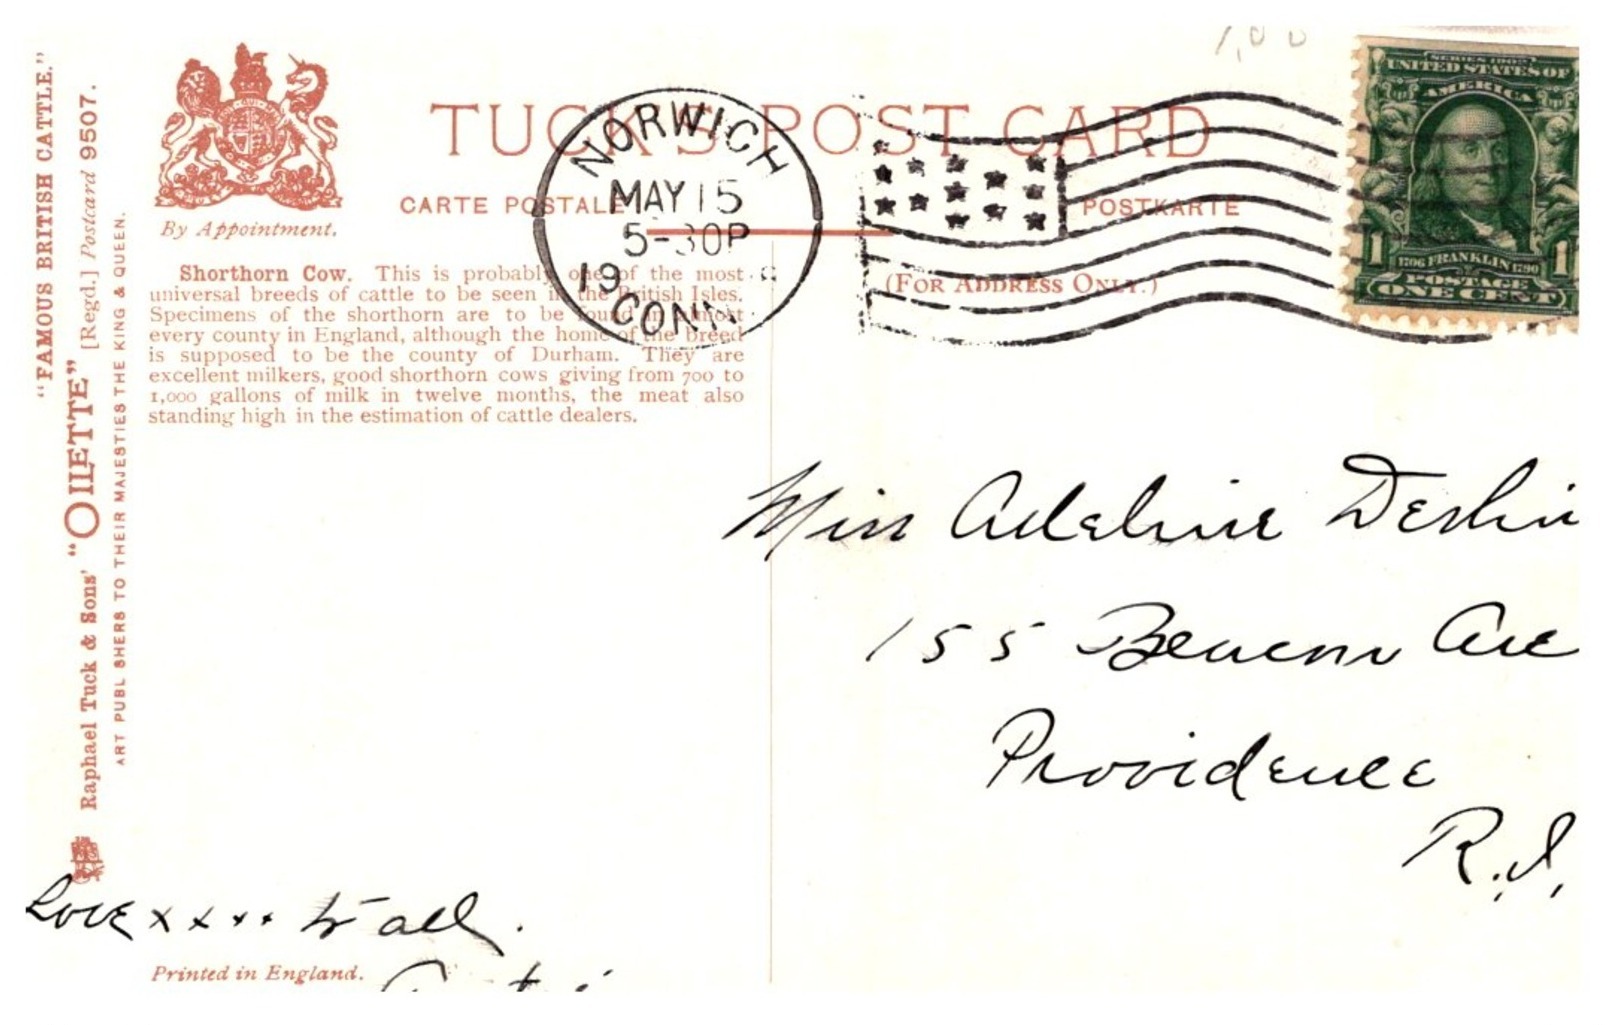 1,00
"FAMOUS BRITISH CATTLE."
Raphael Tuck & Sons' "OILETTE" [Regd.] Postcard 9507.
ART PUBLISHERS TO THEIR MAJESTIES THE KING & QUEEN.
By Appointment.
TUCK'S POST CARD
CARTE POSTALE
POSTKARTE
(FOR ADDRESS ONLY.)
NORWICH
MAY 15
5-30P
19
CONN
SERIES 1902
UNITED STATES OF
AMERICA
1 1706 FRANKLIN 1790 1
POSTAGE
ONE CENT
Shorthorn Cow. This is probably one of the most
universal breeds of cattle to be seen in the British Isles.
Specimens of the shorthorn are to be found in almost
every county in England, although the home of the breed
is supposed to be the county of Durham. They are
excellent milkers, good shorthorn cows giving from 700 to
1,000 gallons of milk in twelve months, the meat also
standing high in the estimation of cattle dealers.
Miss Adeline Deslin
155 Beacon Ave
Providence
R.I.
Love x x x x to all.
Printed in England.